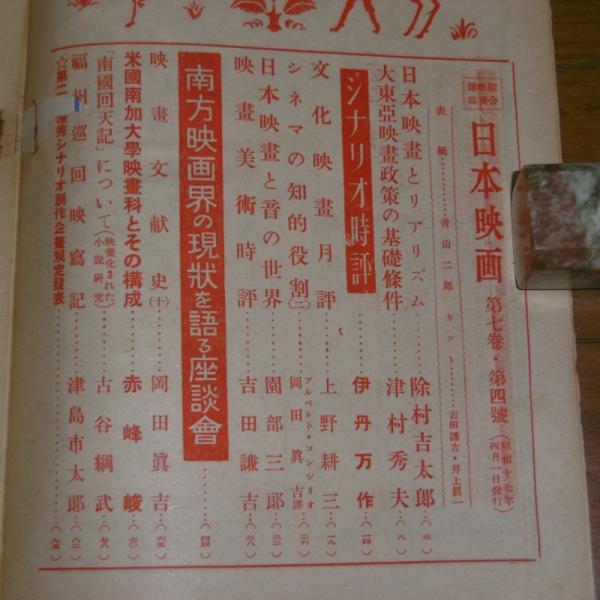 綜合映畫雜誌
日本映画 第七卷・第四號 (昭和十七年四月一日發行)
表紙 青山二郎 カット 吉田謙吉・井上眞一
日本映畫とリアリズム 除村吉太郎
大東亞映畫政策の基礎條件 津村秀夫 (八)
シナリオ時評 伊丹万作 (一四)
文化映畫月評 上野耕三 (一九)
シネマの知的役割(二) アルベルト・コンシリオ 岡田眞吉譯 (二六)
日本映畫と音の世界 園部三郎 (三二)
映畫美術時評 吉田謙吉 (三八)
南方映画界の現狀を語る座談會 (四四)
映畫文献史(十) 岡田眞吉 (六三)
米國南加大學映畫科とその構成 赤峰峻 (七〇)
「南國回天記」について(映畫化された小說硏究) 古谷綱武 (七八)
福州巡回映寫記 津島市太郎 (八二)
☆第二 優秀シナリオ創作企畫規定發表 (八五)